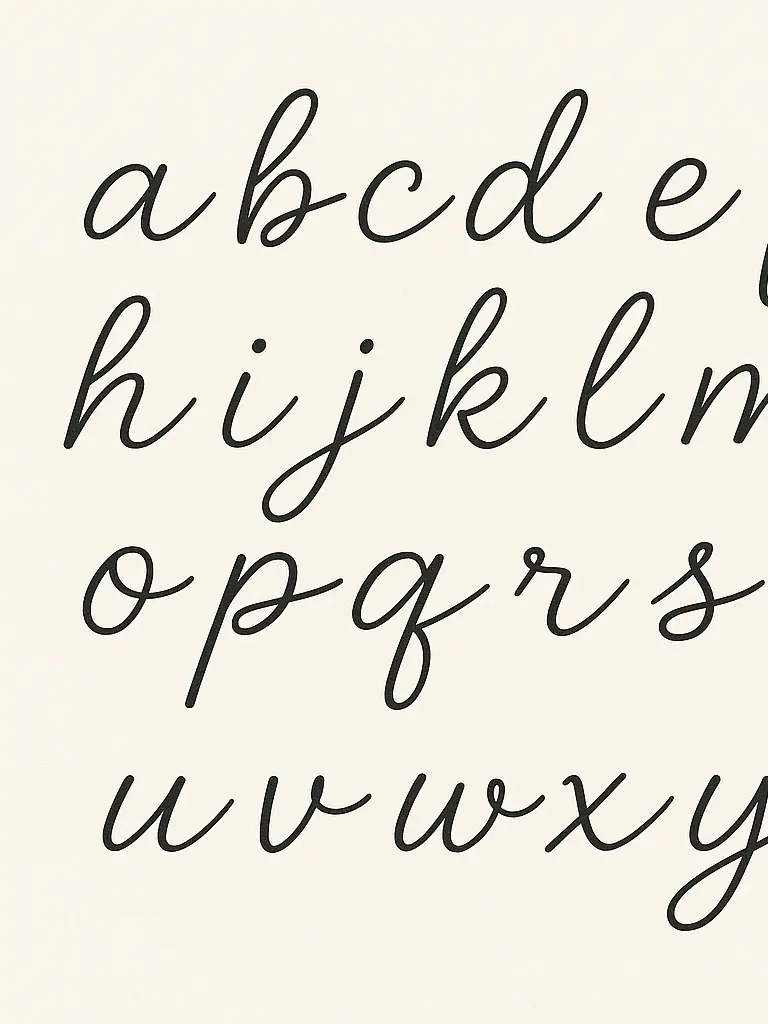 a b c d e
h i j k l m
o p q r s
u v w x y